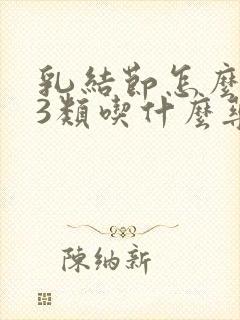 乳結節怎麼
3類喫什麼藥
陳納新